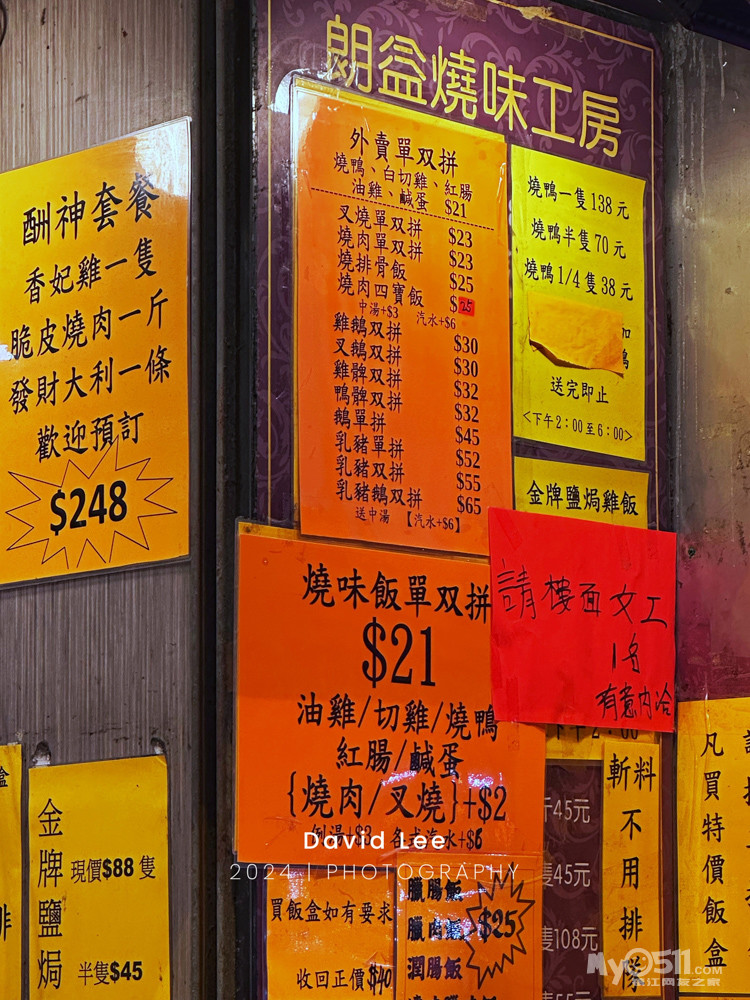 朗益燒味工房
酬神套餐
香妃雞一隻
脆皮燒肉一斤
發財大利一條
歡迎預訂
$248
外賣單双拼
燒鴨、白切雞、紅腸
油雞、鹹蛋 $21
叉燒單双拼 $23
燒肉單双拼 $23
燒排骨飯 $25
燒肉四寶飯 $25
中湯+$3 汽水+$6
雞鵝双拼 $30
叉鵝双拼 $30
雞髀双拼 $32
鴨髀双拼 $32
鵝單拼 $45
乳豬單拼 $52
乳豬双拼 $55
乳豬鵝双拼 $65
送中湯 【汽水+$6】
燒鴨一隻 138 元
燒鴨半隻 70 元
燒鴨 1/4 隻 38 元
送完即止
<下午2:00至6:00>
金牌鹽焗雞飯
請樓面女工
1名
有意內洽
燒味飯單双拼
$21
油雞/切雞/燒鴨
紅腸/鹹蛋
{燒肉/叉燒}+$2
例湯+$3 各式汽水+$6
金牌鹽焗
現價$88 隻
半隻$45
買飯盒如有要求
收回正價$40
臘腸飯
臘肉飯
潤腸飯
$25
45元
隻45元
隻108元
斬料不用排隊
凡買特價飯盒
David Lee
2024 | PHOTOGRAPHY
My0511.com